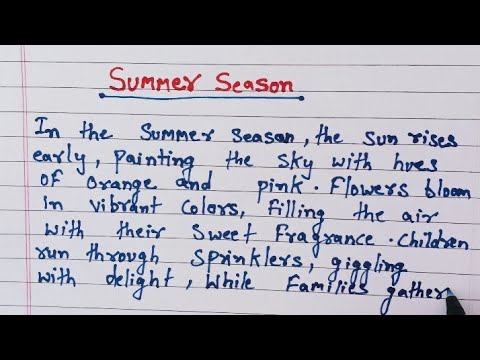 Summer Season
In the Summer Season, the Sun rises
early, Painting the Sky with hues
of orange and pink. Flowers bloom
In vibrant Colors, Filling the air
with their Sweet Fragrance. Children
run through Sprinklers, giggling
with delight, While Families gather